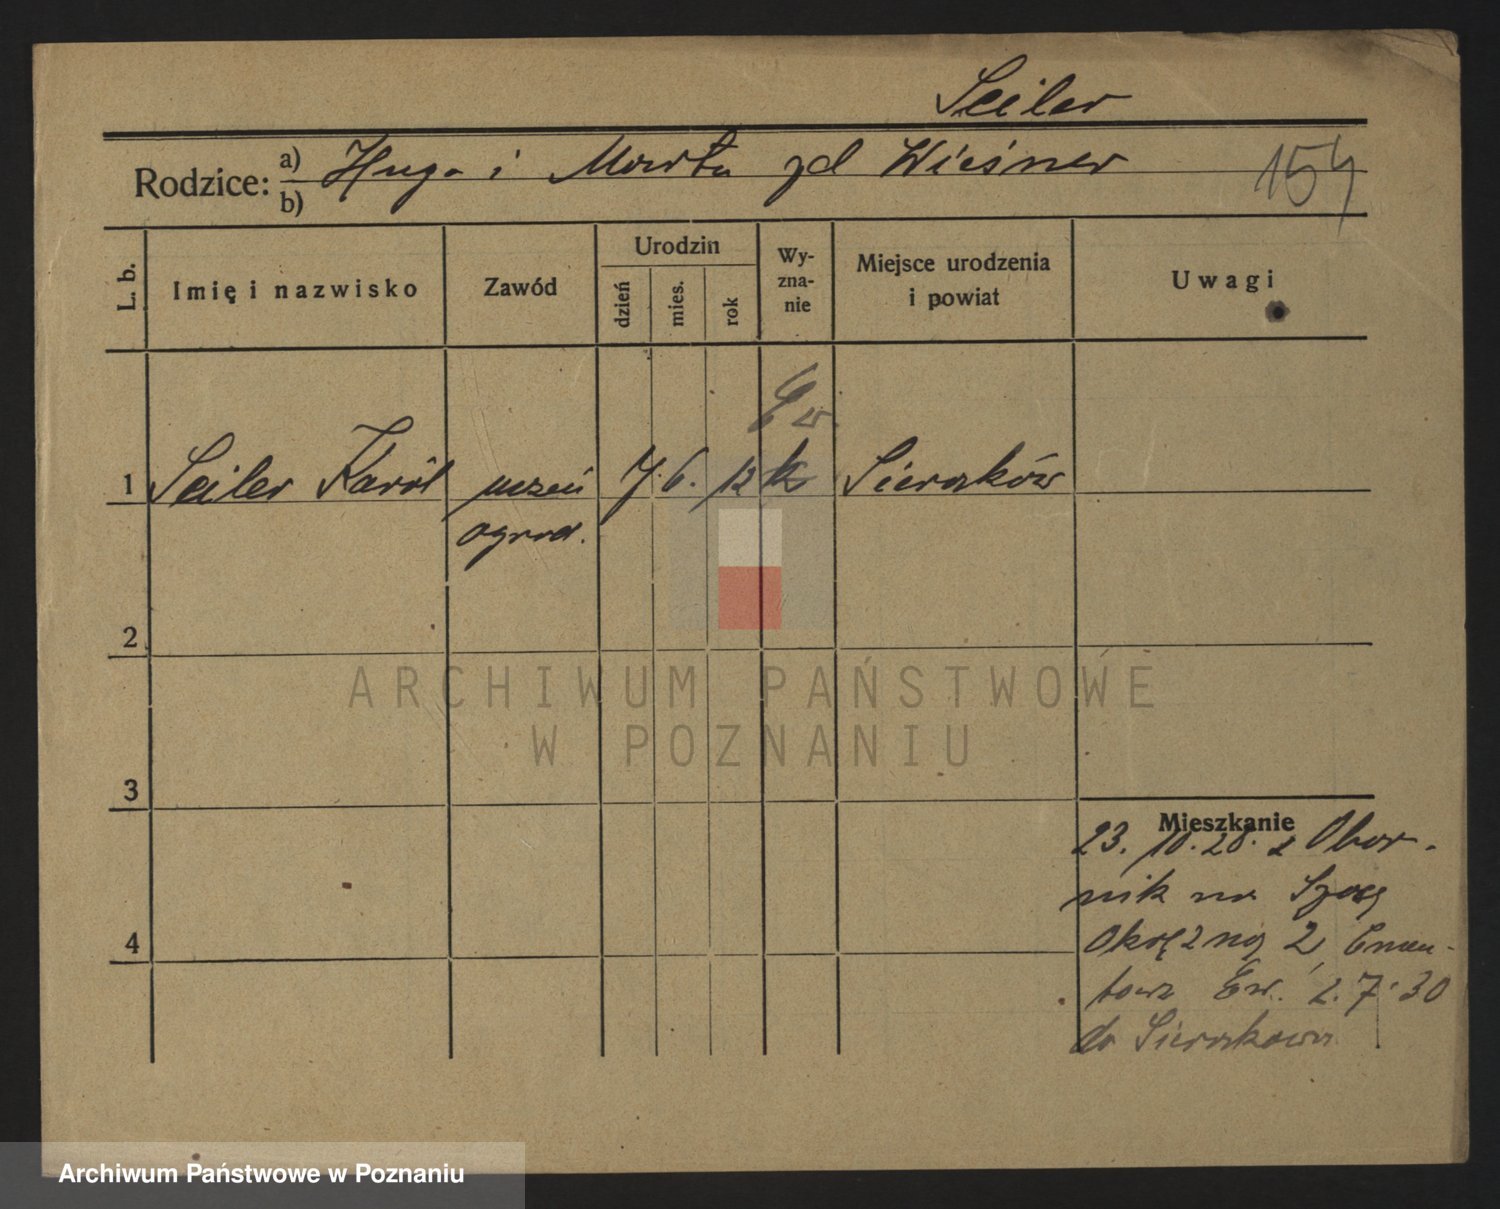 Seiler
Rodzice: a) Hugo i Marta zd Wiesner
b)
154
L. b.
Imię i nazwisko
Zawód
Urodzin
dzień
mies.
rok
Wy-
zna-
nie
Miejsce urodzenia
i powiat
Uwagi
Ew
1 Seiler Karol uczeń 7. 6. 12 k Sieraków
ogrod.
2
ARCHIWUM PAŃSTWOWE
W POZNANIU
3
Mieszkanie
23. 10. 28. z Obor-
nik na Szosę
4
Okrężną 2,
Ew. 2. 7. 30
do Sierakowa
Archiwum Państwowe w Poznaniu